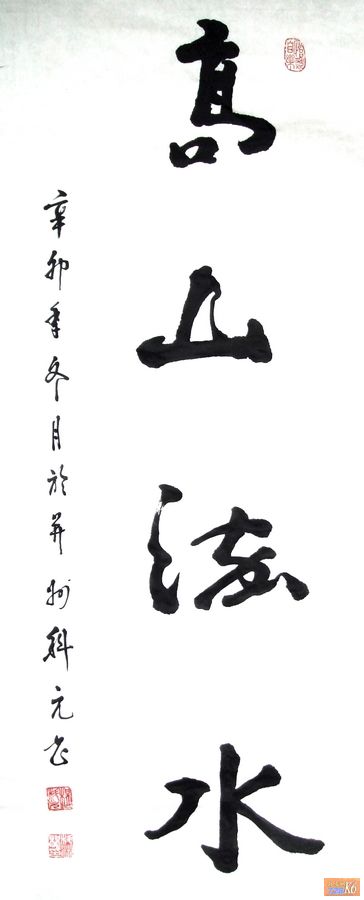 高山流水
辛卯年冬月於并州元书